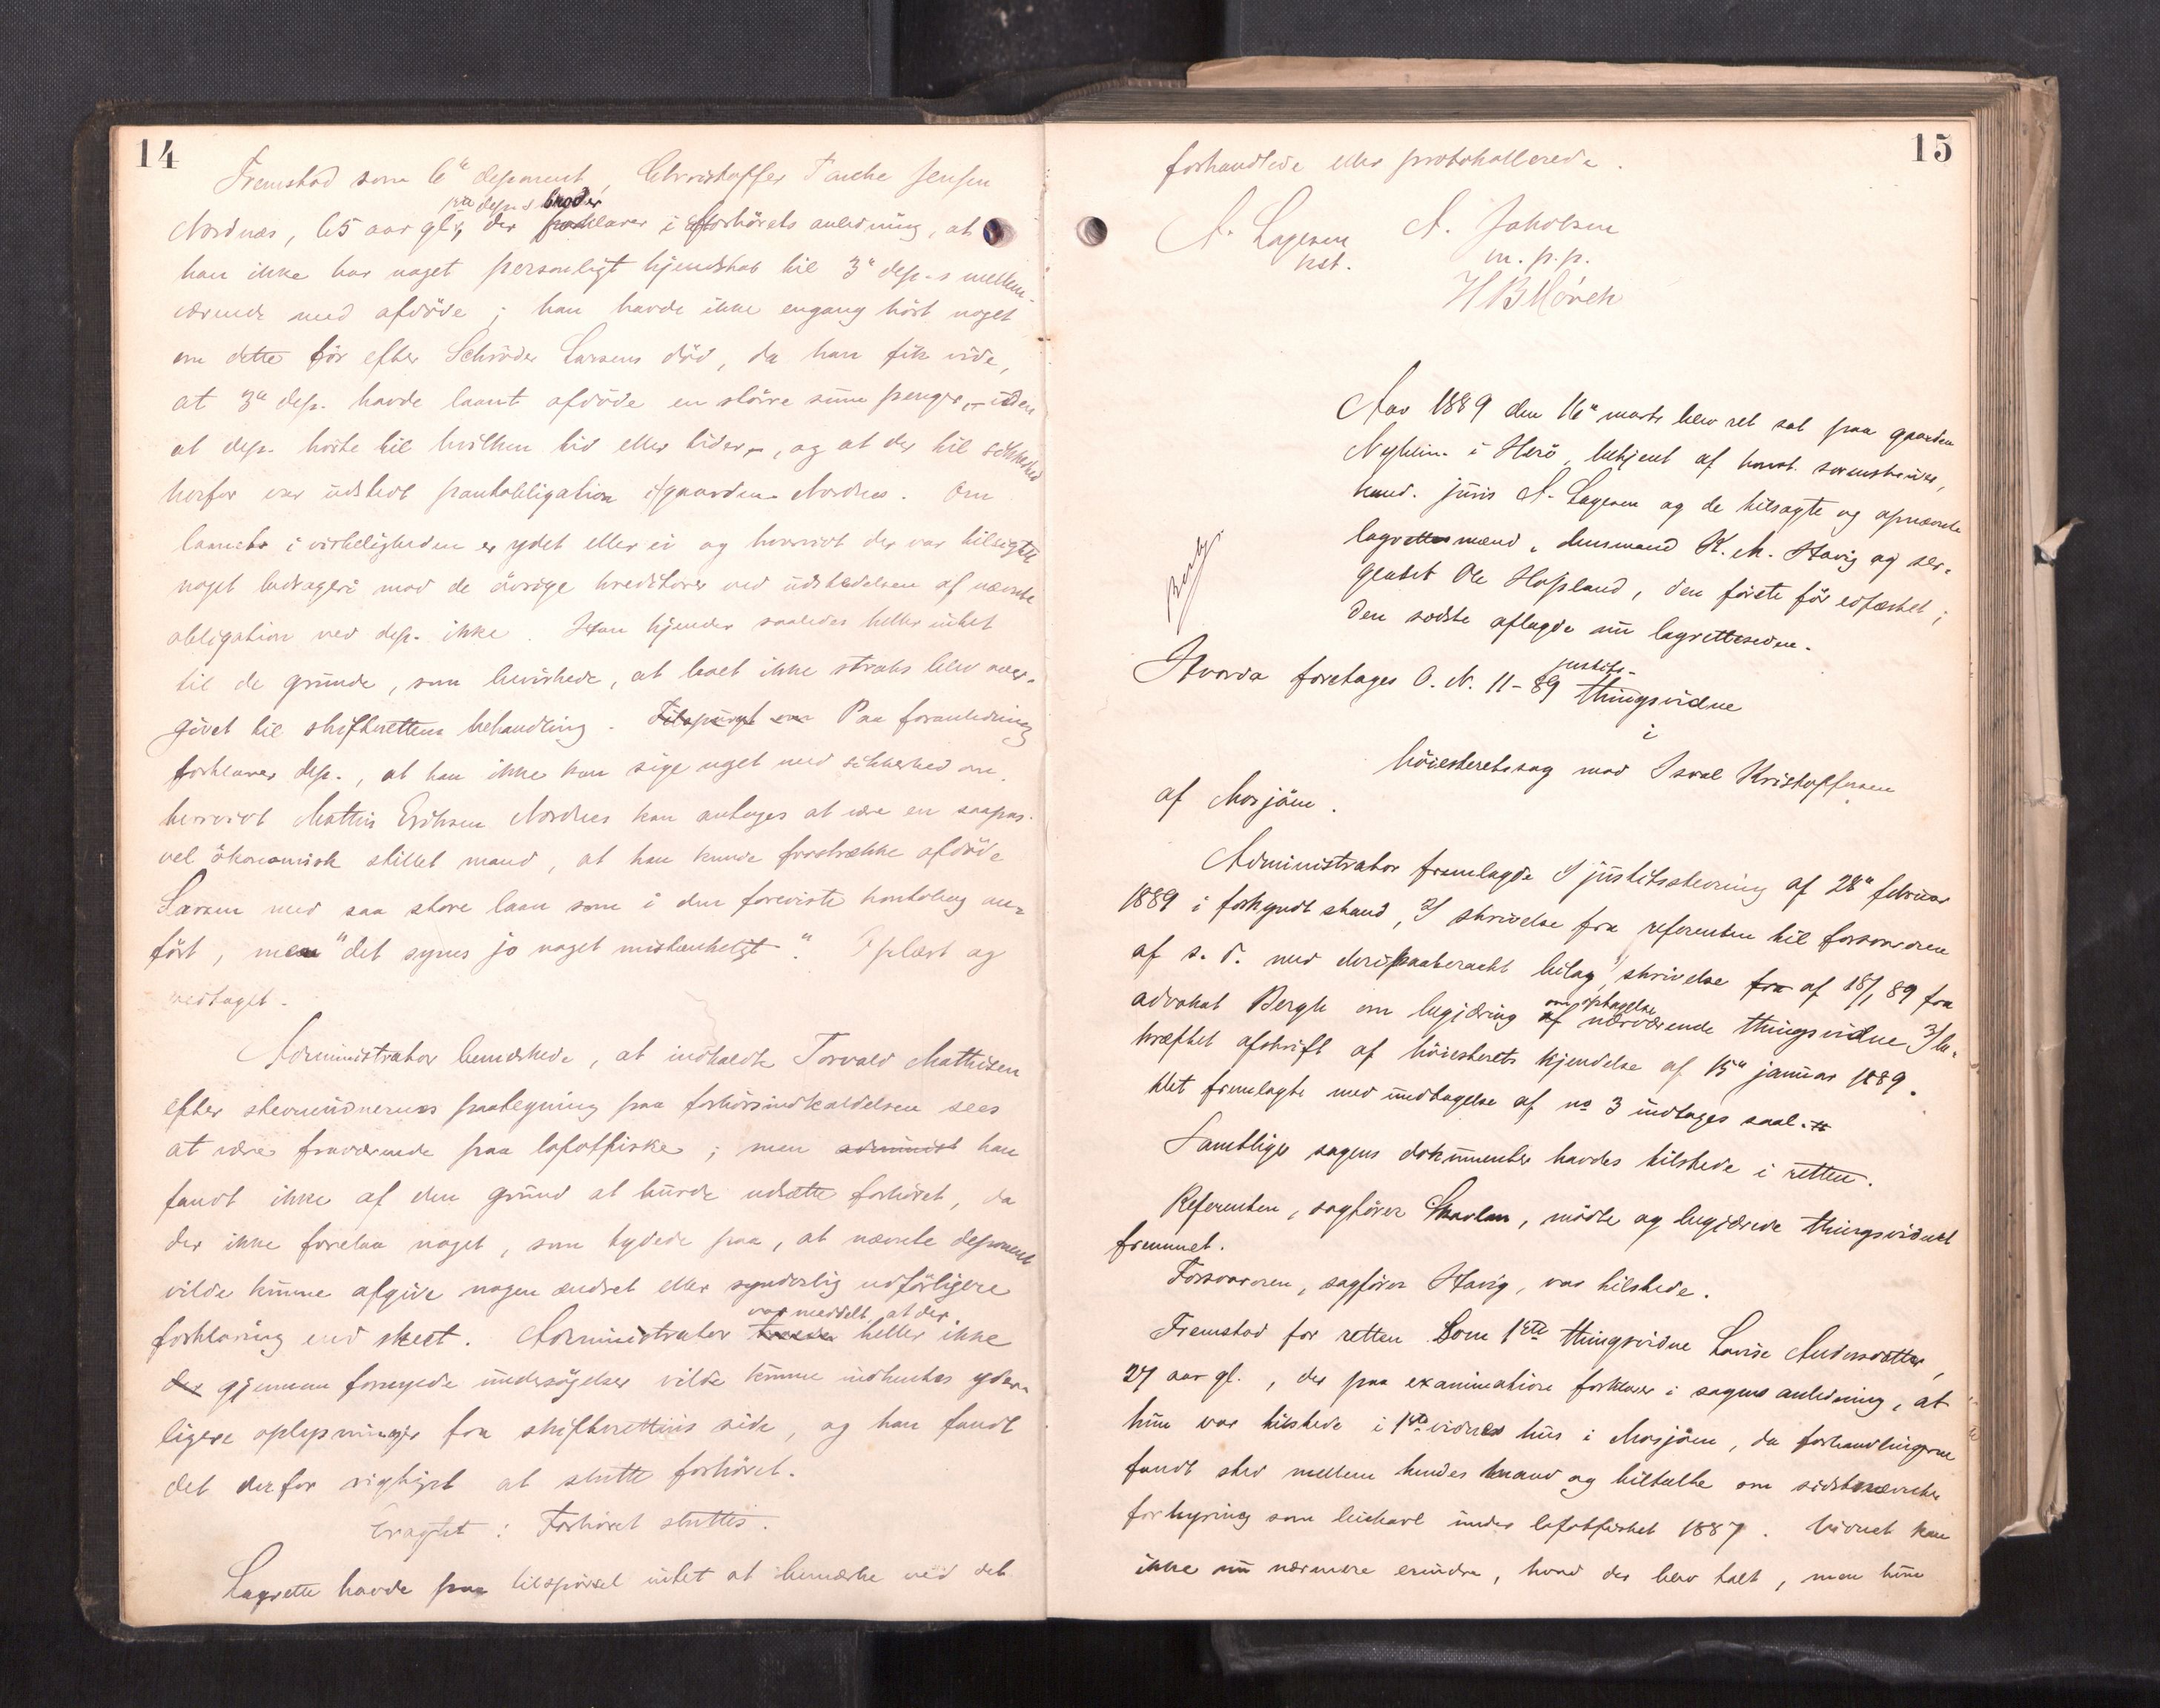 14
Fremstod som 6te deponent, Christoffer Tanche Jensen
3die dep.s broder
Nordnæs, 65 aar gl., der forklarer i forhörets anledning, at
han ikke har noget personligt kjendskab til 3die dep.s mellem-
værende med afdöde; han havde ikke engang hört noget
om dette för efter Schröder Larsens död, da han fik vide,
at 3die dep. havde laant afdöde en större sum penger, - uden
at dep. hörte til hvilken tid eller tider -, og at der til sikkerhed
herfor var udstedt pantobligation i gaarden Nordnes. Om
laanet i virkeligheden er ydet eller ei og hvorvidt der var tilsigtet
noget bedrageri mod de övrige kreditorer ved udstedelsen af nævnte
obligation ved dep. ikke. Han kjender saaledes heller intet
til de grunde, som bevirkede, at boet ikke straks blev over-
givet til skifterettens behandling. Tilspurgt om Paa foranledning
forklarer dep., at han ikke kan sige noget med sikkerhed om
hvorvidt Mathis Eriksen Nordnes kan antages at være en saapas
vel ökonomisk stillet mand, at han kunde forstrække afdöde
Larsen med saa store laan som i den foreviste kontobog an-
fört, men "det synes jo noget mistenkeligt". Oplæst og
vedtaget.
Administrator bemerkede, at indkaldte Torvald Mathisen
efter stevnevidnernes paategning paa forhörsindkaldelsen sees
at være fraværende paa lofotfiske; men administ han
fandt ikke af den grund at burde udsætte forhöret, da
der ikke forelaa noget, som tydede paa, at nævnte deponent
vilde kunne afgive nogen ændret eller synderlig udförligere
var meddelt, at der
forklaring end skeet. Administrator heller ikke
der gjennem fornyede undersögelser vilde kunne indhentes yder-
ligere oplysninger fra skifterettens side, og han fandt
det derfor rigtigst at slutte forhöret.
Eragtet: Forhöret sluttes.
Lagrette havde paa tilspörsel intet at bemærke ved det
15
forhandlede eller protokollerede.
A. Lagesen A. Jakobsen
kst. m. p. p.
H B Mörch
Aar 1889 den 16de marts blev ret sat paa gaarden
Nyheim i Herö, betjent af konst. sorenskriver,
kand. juris A. Lagesen og de tilsagte og opnævnte
lagrettesmænd, lensmand K. M. Stavig og ser-
geant Ole Hopland, den förste för edfæstet;
den sidste aflagde nu lagretteseden.
Hvorda foretages O. N. 11-89 justits-
thingsvidne
i
höiesteretssag mod Isval Kristoffersen
af Mosjöen.
Administrator fremlagde 1/ justitsstevning af 28de februar
1889 i forkyndt stand, 2/ skrivelse fra referenten til forsvareren
af s. d. med derispaaberaabt bilag, skrivelse fra af 18/1 89 fra
om optagelse
advokat Bergh om begjæring af nærværende thingsvidne 3/ be-
kræftet afskrift af höiesterets kjendelse af 15de januar 1889.
Det fremlagte med undtagelse af no 3 indtages saal.
Samtlige sagens dokumenter havdes tilstede i retten.
Referenten, sagförer Skavlan, mödte og begjærede thingsvidnet
fremmet.
Forsvareren, sagförer Stavig, var tilstede.
Fremstod for retten Som 1ste thingsvidne Lovise Andersdatter,
27 aar gl., der paa examinatione forklarer i sagens anledning, at
hun var tilstede i 1ste vidnes hus i Mosjöen, da forhandlingerne
fandt sted mellem hendes mand og tiltalte om sidstnævntes
forhyring som leiekarl under lofotfisket 1887. Vidnet kan
ikke nu nærmere erindre, hvad der blev talt, men hun